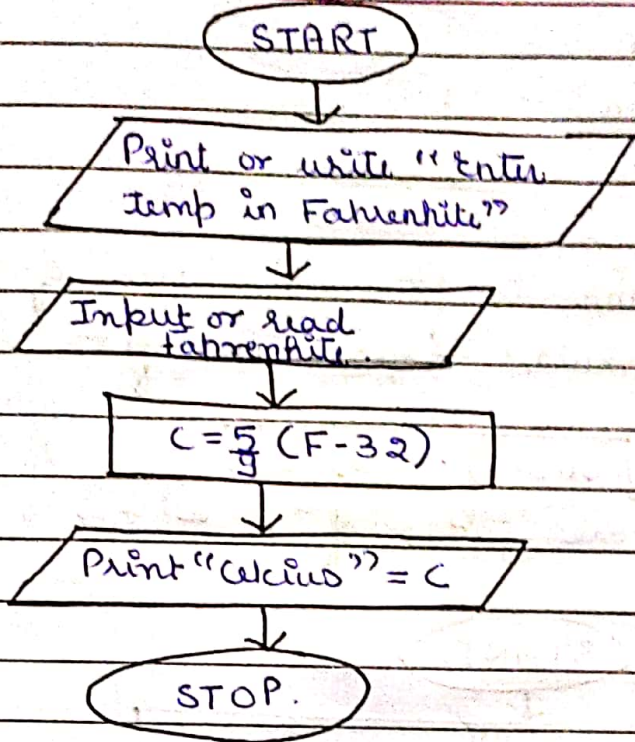 START
Print or write "Enter
temp in Fahrenhite"
Input or read
fahrenhite.
C = 5/9 (F-32).
Print "Celcius" = C
STOP.